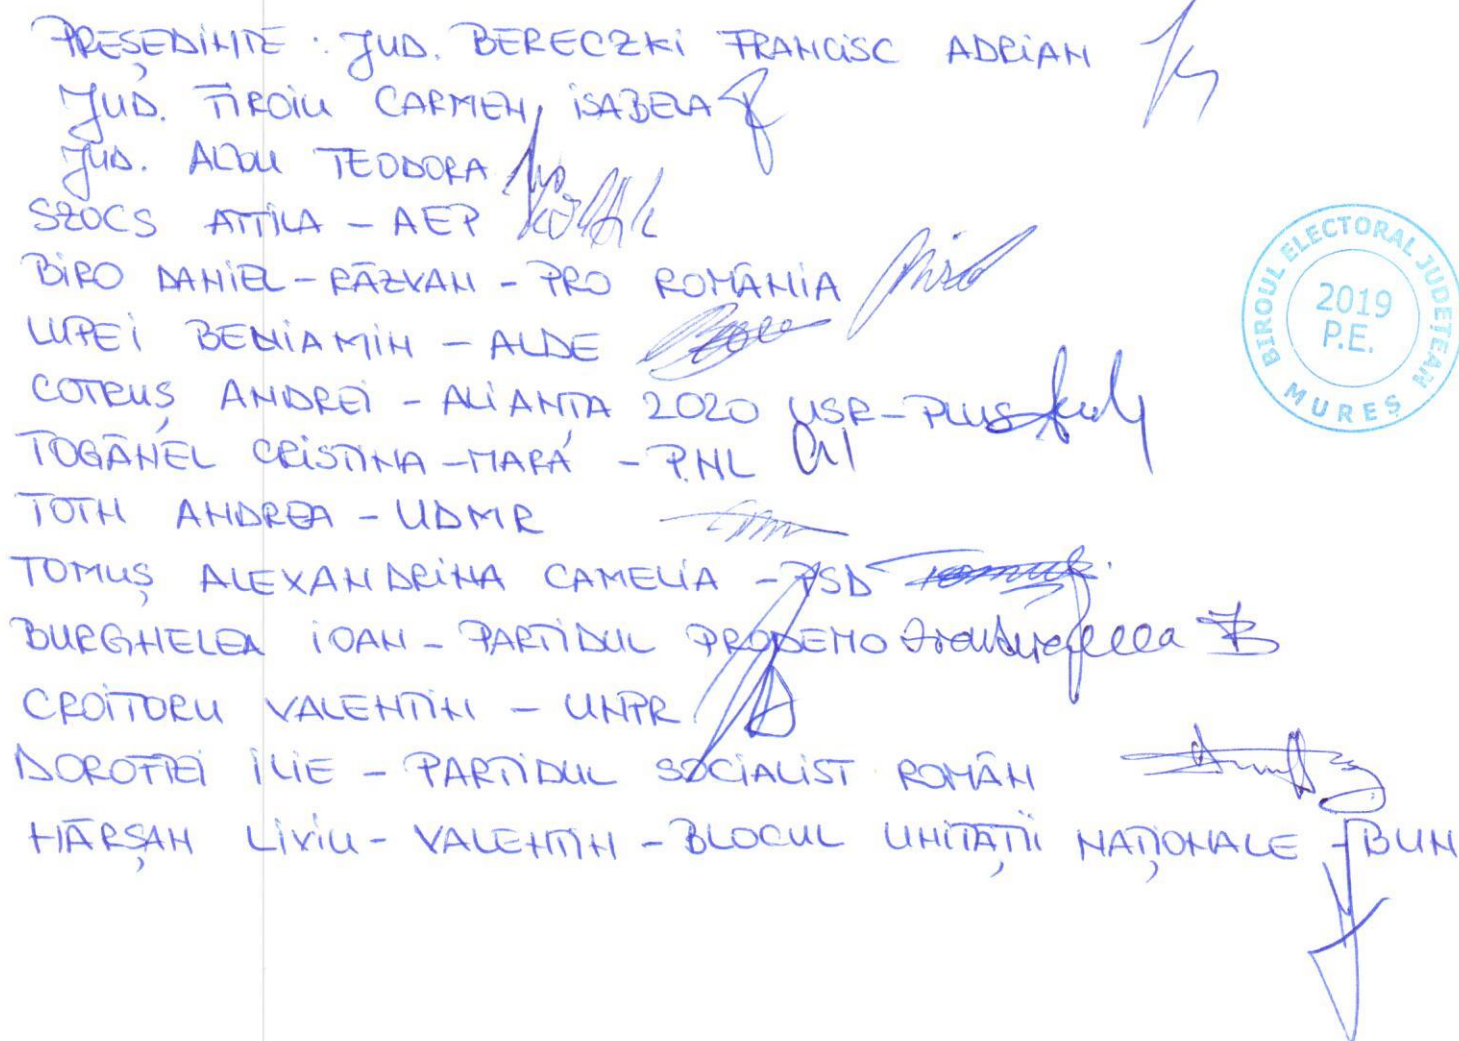 PREȘEDINTE : JUD. BERECZKI FRANCISC ADRIAN
JUD. TIROIU CARMEN ISABELA
JUD. ALDU TEODORA
SZOCS ATTILA - AEP
BIRO DANIEL - RĂZVAN - PRO ROMÂNIA
LUPEI BENIAMIN - ALDE
COTRUȘ ANDREI - ALIANTA 2020 USR-PLUS
TOGĂNEL CRISTINA - MARA - PNL
TOTH ANDREA - UDMR
TOMUȘ ALEXANDRINA CAMELIA - PSD
BURGHELEA IOAN - PARTIDUL PRODEMO
CROITORU VALENTIN - UNPR
DOROTEI ILIE - PARTIDUL SOCIALIST ROMÂN
HĂRȘAN LIVIU - VALENTIN - BLOCUL UNITĂȚII NAȚIONALE - BUN
BIROUL ELECTORAL JUDEȚEAN
MUREȘ
2019
P.E.